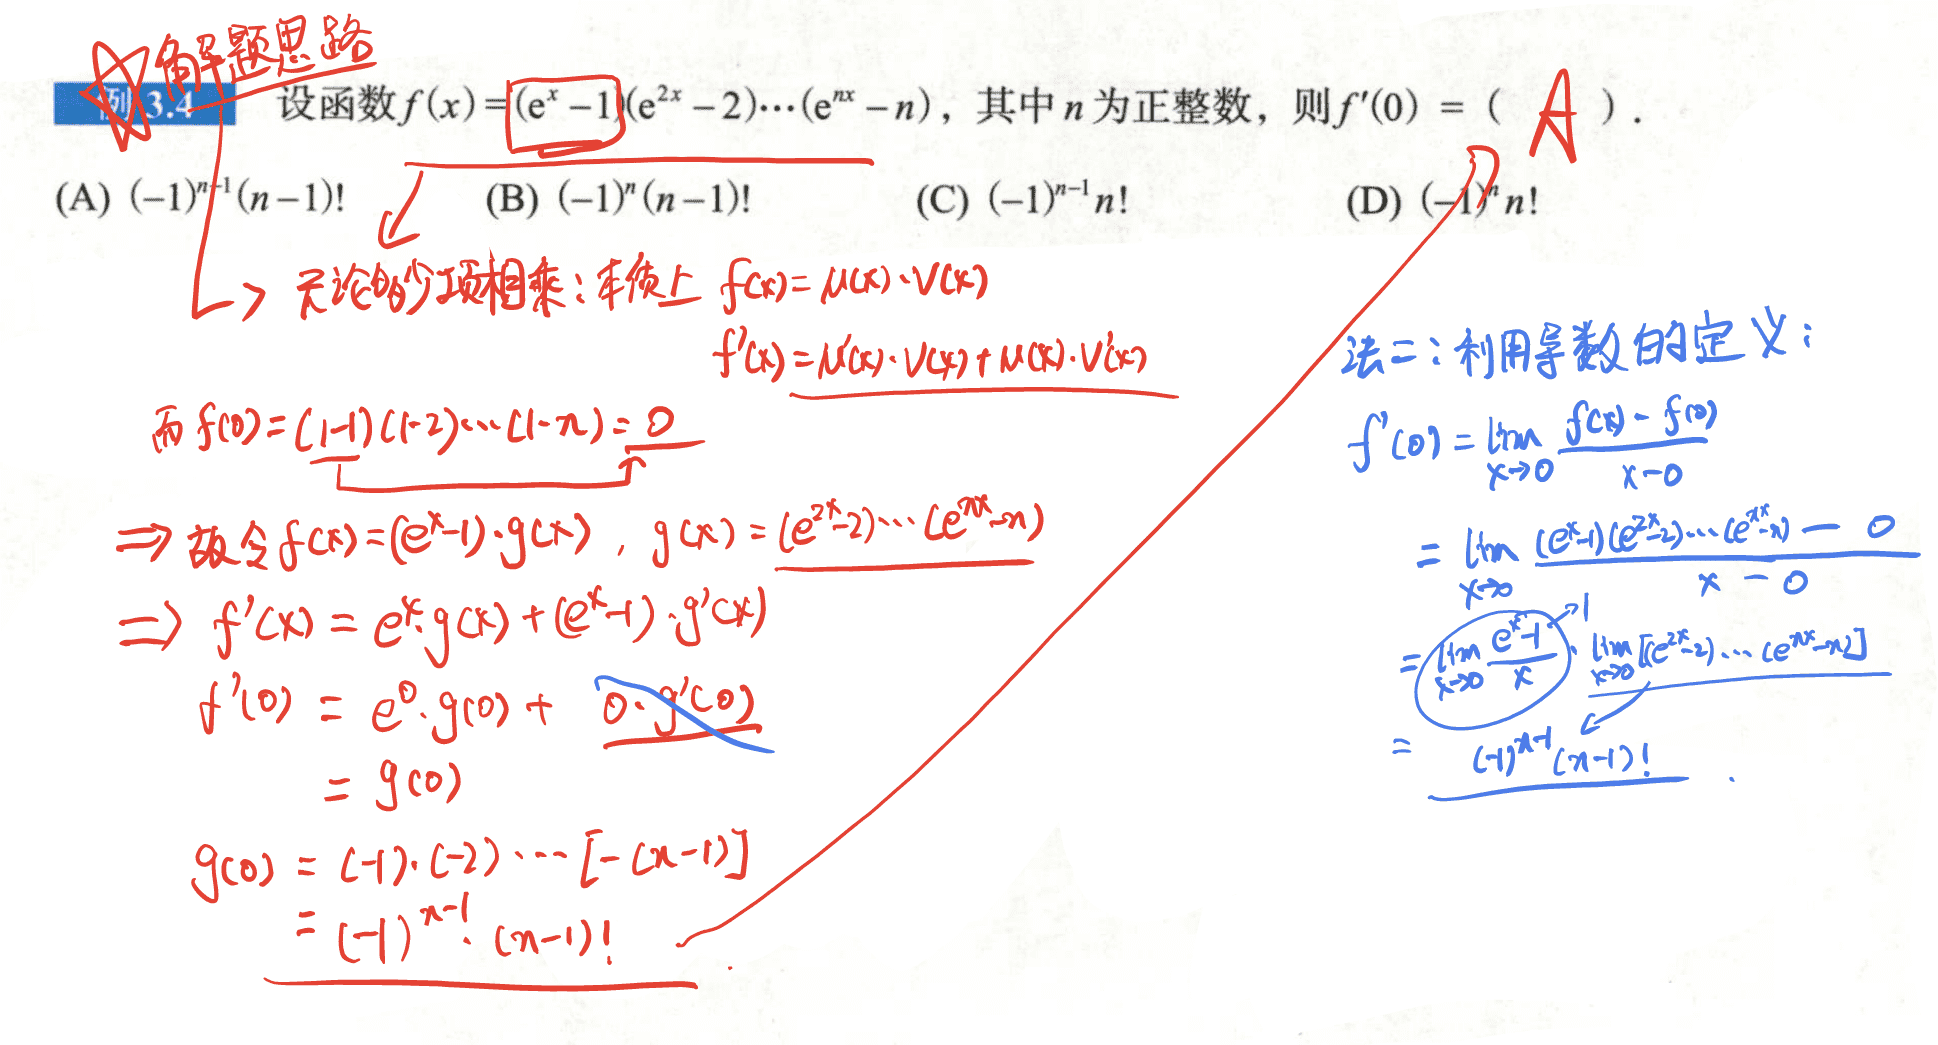 解题思路
例 3.4 设函数 f(x)=(e^x−1)(e^{2x}−2)⋯(e^{nx}−n)，其中 n 为正整数，则 f′(0) =（ A ）.
(A) (−1)^{n−1}(n−1)! (B) (−1)^n(n−1)! (C) (−1)^{n−1}n! (D) (−1)^n n!
无论多少项相乘：本质上 f(x)=μ(x)·V(x)
f′(x)=μ′(x)·V(x)+μ(x)·V′(x)
而 f(0)=(1-1)(1-2)⋯(1-n)=0
⇒ 故令 f(x)=(e^x-1)·g(x)，g(x)=(e^{2x}-2)⋯(e^{nx}-n)
⇒ f′(x) = e^x·g(x)+(e^x-1)·g′(x)
f′(0) = e^0·g(0)+ 0·g′(0)
= g(0)
g(0) = (-1)·(-2)⋯[-(n-1)]
= (-1)^{n-1}·(n-1)!
法二：利用导数的定义：
f′(0) = lim_{x→0} \frac{f(x)-f(0)}{x-0}
= lim_{x→0} \frac{(e^x-1)(e^{2x}-2)⋯(e^{nx}-n)-0}{x-0}
= lim_{x→0} \frac{e^x-1}{x} → 1 · lim_{x→0} [(e^{2x}-2)⋯(e^{nx}-n)]
= (-1)^{n-1}(n-1)!